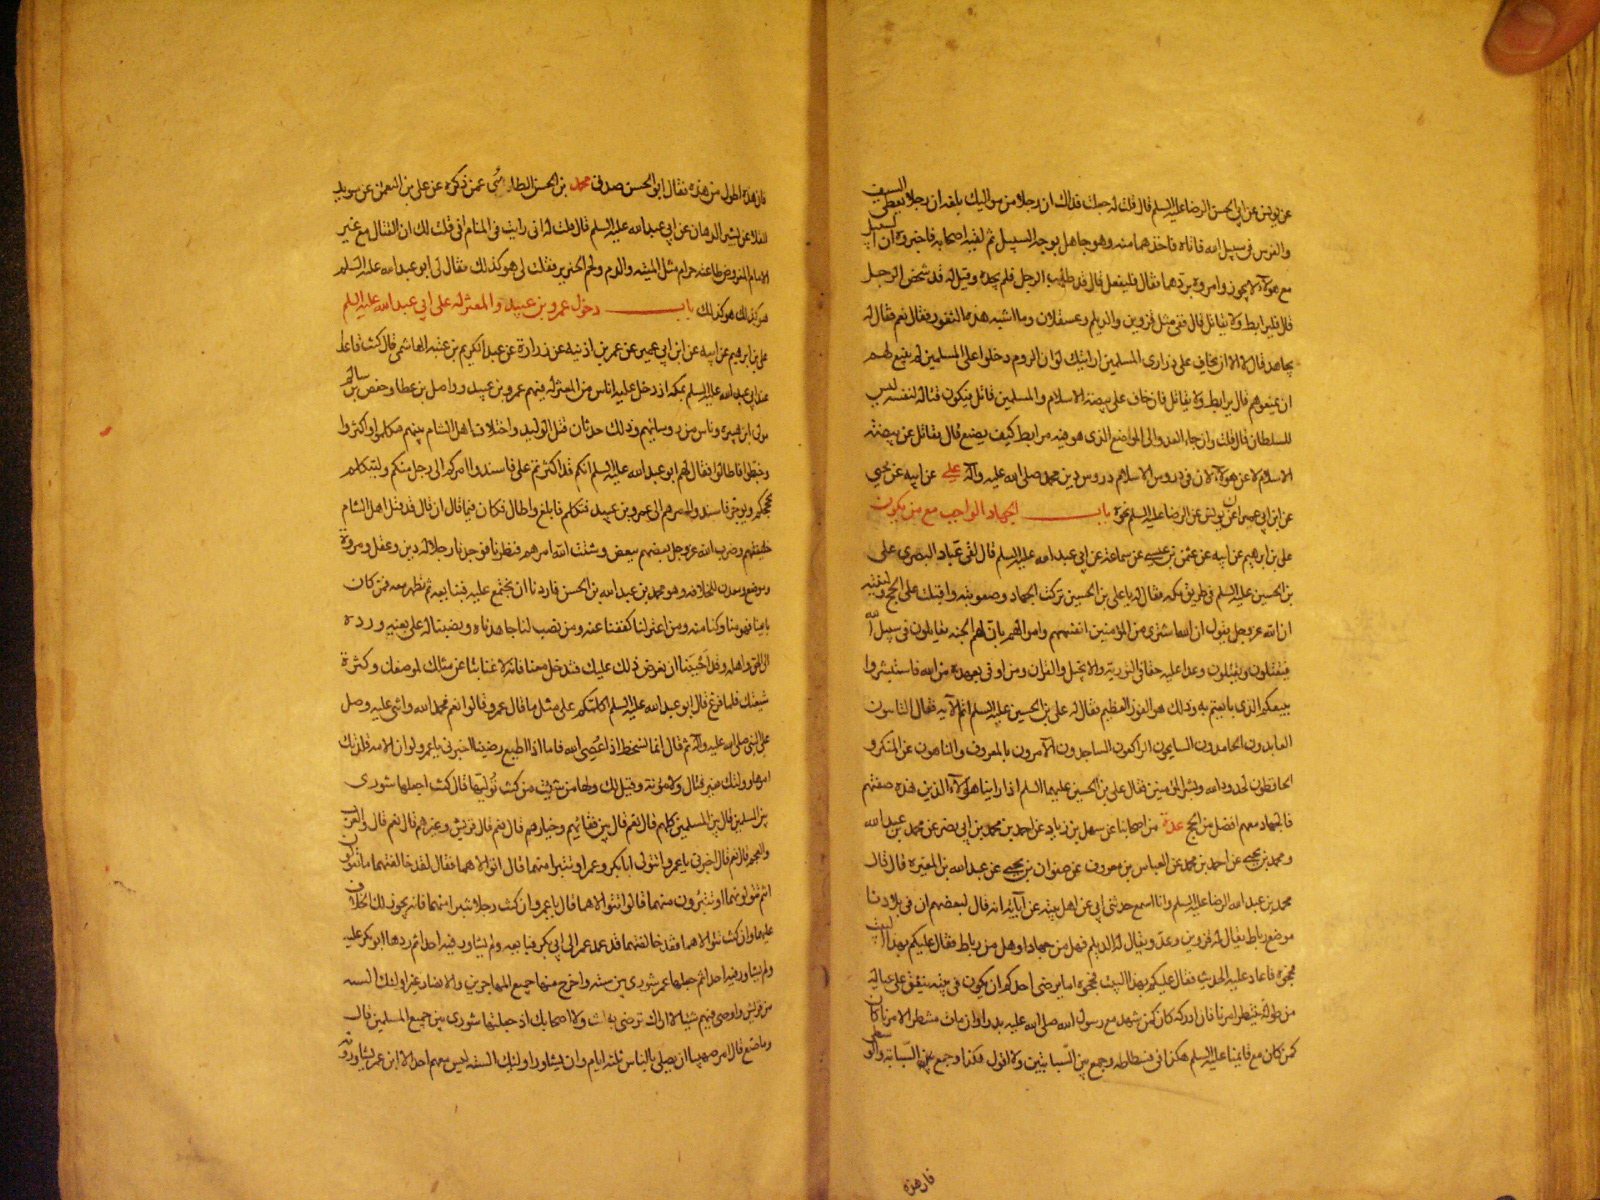 عن يونس عن ابي الحسن الرضا عليه السلم قال قلت له جعلت فداك ان رجلا من مواليك بلغه ان رجلا يعطى السيف
والفرس في سبيل الله فاتاه فاخذهما منه وهو جاهل بوجه السبيل ثم لقيه اصحابه فاخبروه ان السبيل
مع هؤلاء لا يجوز وامروه بردهما فقال فليفعل قال قد طلب الرجل فلم يجده وقيل له قد شخص الرجل
قال فليرابط ولا يقاتل قال ففي مثل قزوين والديلم وعسقلان وما اشبه هذه الثغور فقال نعم فقال له
يجاهد قال لا الا ان يخاف على ذراري المسلمين ارايتك لو ان الروم دخلوا على المسلمين لم ينبغ لهم
ان يمنعوهم قال يرابط ولا يقاتل فان خاف على بيضة الاسلام والمسلمين قاتل فيكون قتاله لنفسه ليس
للسلطان قال قلت وان جاء العدو الى الموضع الذي هو فيه مرابط كيف يصنع قال يقاتل عن بيضة
الاسلام لا عن هؤلاء لان في دروس الاسلام دروس دين محمد صلى الله عليه وآله علي عن ابيه عن يحيى
عن ابن ابي عمران عن يونس عن الرضا عليه السلم نحوه باب الجهاد الواجب مع من يكون
علي بن ابرهيم عن ابيه عن عثمن بن عيسى عن سماعة عن ابي عبد الله عليه السلم قال لقى عباد البصري على
بن الحسين عليه السلم في طريق مكه فقال له يا علي بن الحسين تركت الجهاد وصعوبته واقبلت على الحج ولينته
ان الله عز وجل يقول ان الله اشترى من المؤمنين انفسهم واموالهم بان لهم الجنه يقاتلون في سبيل الله
فيقتلون ويقتلون وعدا عليه حقا في التورية والانجيل والقران ومن اوفى بعهده من الله فاستبشروا
ببيعكم الذي بايعتم به وذلك هو الفوز العظيم فقال له علي بن الحسين عليه السلم اتم الآيه فقال التائبون
العابدون الحامدون السايحون الراكعون الساجدون الآمرون بالمعروف والناهون عن المنكر و
الحافظون لحدود الله وبشر المؤمنين فقال علي بن الحسين عليهما السلم اذا راينا هؤلاء الذين هذه صفتهم
فالجهاد معهم افضل من الحج عدة من اصحابنا عن سهل بن زياد عن احمد بن محمد بن ابي نصر عن محمد بن عبد الله
ومحمد بن يحيى عن احمد بن محمد عن العباس بن معروف عن صفوان بن يحيى عن عبد الله بن المغيره قال قال
محمد بن عبد الله الرضا عليه السلم وانا اسمع حدثني ابي عن اهل بيته عن آبائه انه قال لبعضهم ان في بلادنا
موضع رباط يقال له قزوين وعدو يقال له الديلم فهل من جهاد او هل من رباط فقال عليكم بهذا البيت
فحجوه فاعاد عليه الحديث فقال عليكم بهذا البيت فحجوه اما يرضى احدكم ان يكون في بيته ينفق على عياله
من طوله ينتظر امرنا فان ادركه كان كمن شهد مع رسول الله صلى الله عليه بدرا وان مات منتظر الامرنا كان
كمن كان مع قائمنا عليه السلم هكذا في فسطاطه وجمع بين السبابتين ولا اقول هكذا وجمع بين السبابة والوسطى
فان هذه
فان هذه اطول من هذه فقال ابو الحسن صدق محمد بن الحسن الطائي عمن ذكره عن علي بن النعمن عن سويد
القلا عن بشير الدهان عن ابي عبد الله عليه السلم قال قلت له اني رايت في المنام اني قلت لك ان القتال مع غير
الامام المفروض طاعته حرام مثل الميته والدم ولحم الخنزير فقلت لي هو كذلك فقال لي ابو عبد الله عليه السلم
هو كذلك هو كذلك باب دخول عمرو بن عبيد والمعتزله على ابي عبد الله عليه السلم
علي بن ابرهيم عن ابيه عن ابن ابي عمير عن عمر بن اذينه عن زرارة عن عبد الكريم بن عتبه الهاشمي قال كنت قاعدا
عند ابي عبد الله عليه السلم بمكه اذ دخل عليه اناس من المعتزله فيهم عمرو بن عبيد وواصل بن عطا وحفص بن سالم
مولى ابن هبيره وناس من رؤسائهم وذلك حدثان قتل الوليد واختلاف اهل الشام بينهم فتكلموا واكثروا
وخطبوا فاطالوا فقال لهم ابو عبد الله عليه السلم انكم قد اكثرتم علي فاسندوا امركم الى رجل منكم وليتكلم
بحججكم ويوجز فاسندوا امرهم الى عمرو بن عبيد فتكلم فابلغ واطال فكان فيما قال ان قال قد قتل اهل الشام
خليفتهم وضرب الله عز وجل بعضهم ببعض وشتت الله امرهم فنظرنا فوجدنا رجلا له دين وعقل ومروة
وموضع ومعدن للخلافه وهو محمد بن عبد الله بن الحسن فاردنا ان نجتمع عليه فنبايعه ثم نظهر معه فمن كان
بايعنا فهو منا وكنا منه ومن اعتزلنا كففنا عنه ومن نصب لنا جاهدناه ونصبنا له على بغيه ورده
الى الحق واهله وقد احببنا ان نعرض ذلك عليك فتدخل معنا فانه لا غنا بنا عن مثلك لموضعك وكثرة
شيعتك فلما فرغ قال ابو عبد الله عليه السلم اكلكم على مثل ما قال عمرو قالوا نعم فحمد الله واثنى عليه وصلى
على النبي صلى الله عليه وآله ثم قال انما نسخط اذا عصي الله فاما اذا اطيع رضينا اخبرني يا عمرو لو ان الامه قلدتك
امرها وولتك بغير قتال ولا مؤنة وقيل لك ولها من شئت من كنت توليها قال كنت اجعلها شورى
بين المسلمين قال بين المسلمين كلهم قال نعم قال بين فقهائهم وخيارهم قال نعم قال قريش وغيرهم قال نعم قال والعرب
والعجم قال نعم قال اخبرني يا عمرو اتتولى ابا بكر وعمر او تتبرا منهما قال اتولاهما فقال لقد خالفتهما ما تقولون
انتم تتولونهما او تتبرؤن منهما قالوا نتولاهما قال يا عمرو ان كنت رجلا تتبرا منهما فانه يجوز لك الخلاف
عليهما وان كنت تتولاهما فقد خالفتهما قد عمد عمر الى ابي بكر فبايعه ولم يشاور فيه احدا ثم ردها ابو بكر عليه
ولم يشاور فيه احدا ثم جعلها عمر شورى بين سته واخرج منها جميع المهاجرين والانصار غير اولئك السته
من قريش واوصى فيهم شيئا لا اراك ترضى به انت ولا اصحابك اذ جعلتها شورى بين جميع المسلمين قال
وما صنع قال امر صهيبا ان يصلي بالناس ثلثه ايام وان يشاور اولئك السته ليس معهم احد الا ابن عمر يشاورونه